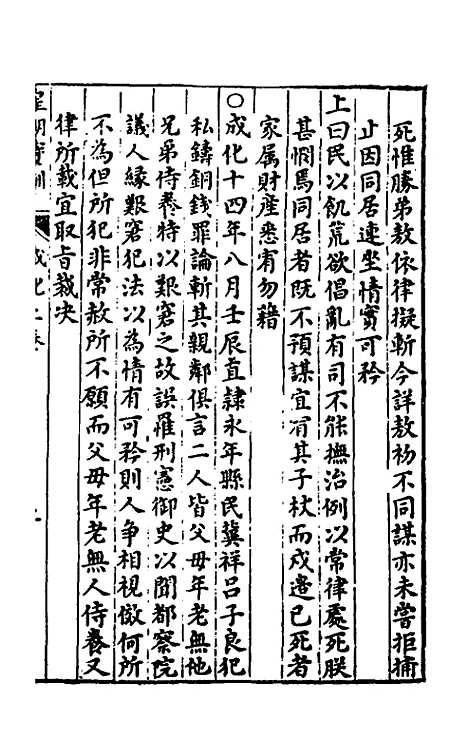 死惟勝弟敖依律擬斬今詳敖初不同謀亦未嘗拒捕
止因同居連坐情實可矜
上曰民以飢荒欲倡亂有司不能撫治例以常律處死朕
甚憫焉同居者既不預謀宜宥其子杖而戍邊已死者
家属財産悉宥勿籍
○成化十四年八月壬辰直隸永年縣民冀祥吕子良犯
私鑄銅錢罪論斬其親鄰俱言二人皆父母年老無他
兄弟侍養特以艱窘之故誤罹刑憲御史以聞都察院
議人緣艱窘犯法以為情有可矜則人争相視傚何所
不為但所犯非常赦所不願而父母年老無人侍養又
律所載宜取㫖裁决
皇明寶訓
成化二卷